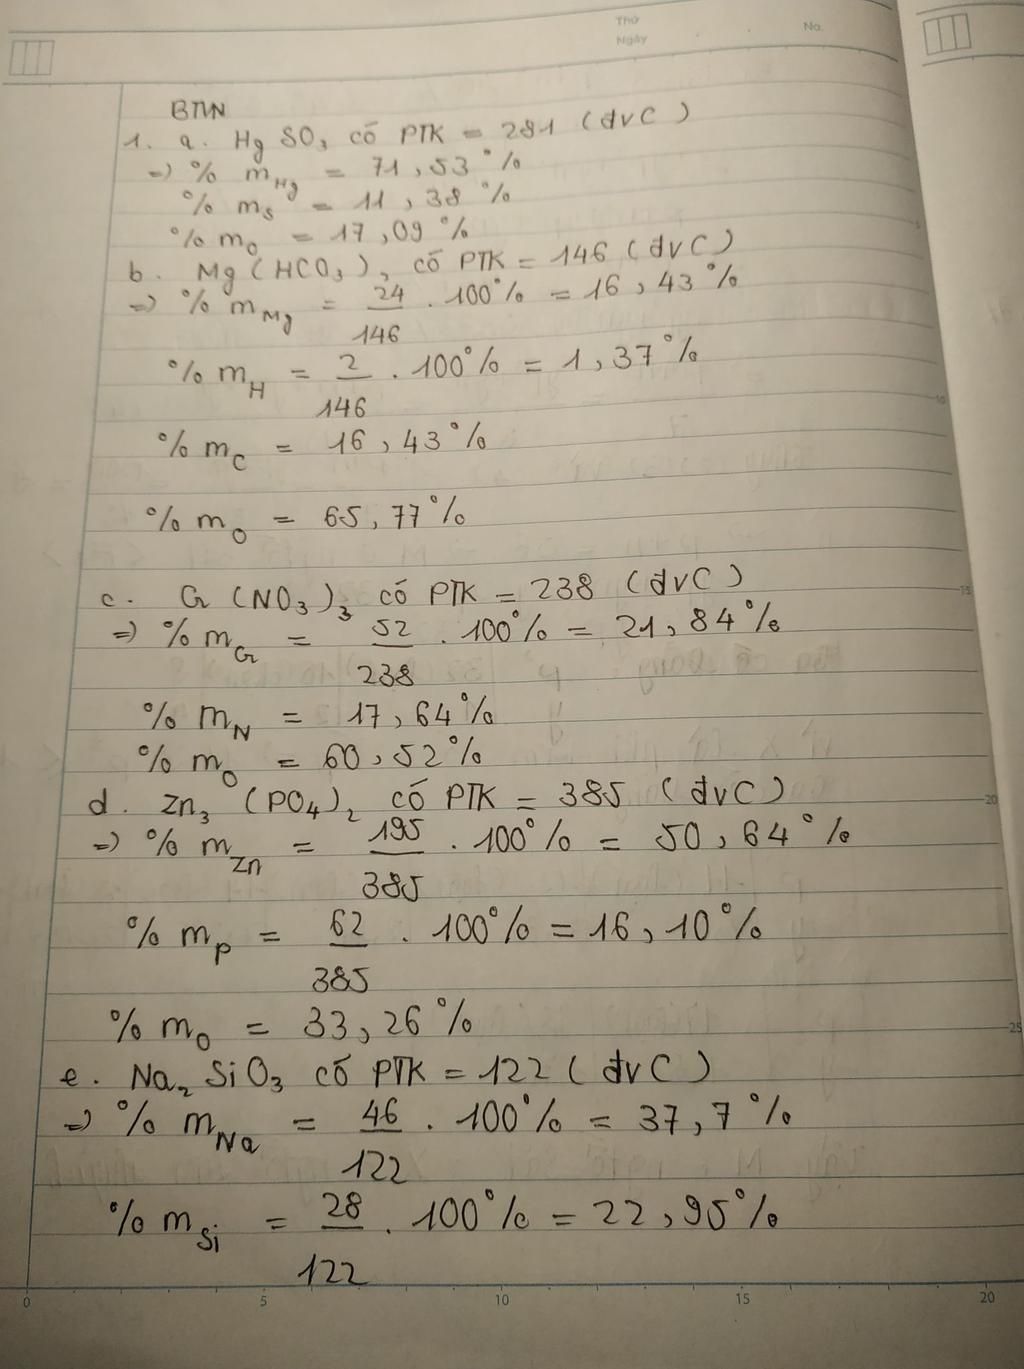 Thứ
Ngày
No.
BTVN
1. a. HgSO₃ có PTK = 281 (đvC)
=> % m_Hg = 71,53 %
% m_S = 11,38 %
% m_O = 17,09 %
b. Mg(HCO₃)₂ có PTK = 146 (đvC)
=> % m_Mg = 24/146 . 100% = 16,43 %
% m_H = 2/146 . 100% = 1,37 %
% m_C = 16,43 %
% m_O = 65,77 %
c. Cr(NO₃)₃ có PTK = 238 (đvC)
=> % m_Cr = 52/238 . 100% = 21,84 %
% m_N = 17,64 %
% m_O = 60,52 %
d. Zn₃(PO₄)₂ có PTK = 385 (đvC)
=> % m_Zn = 195/385 . 100% = 50,64 %
% m_P = 62/385 . 100% = 16,10 %
% m_O = 33,26 %
e. Na₂SiO₃ có PTK = 122 (đvC)
=> % m_Na = 46/122 . 100% = 37,7 %
% m_Si = 28/122 . 100% = 22,95 %
0 5 10 15 20